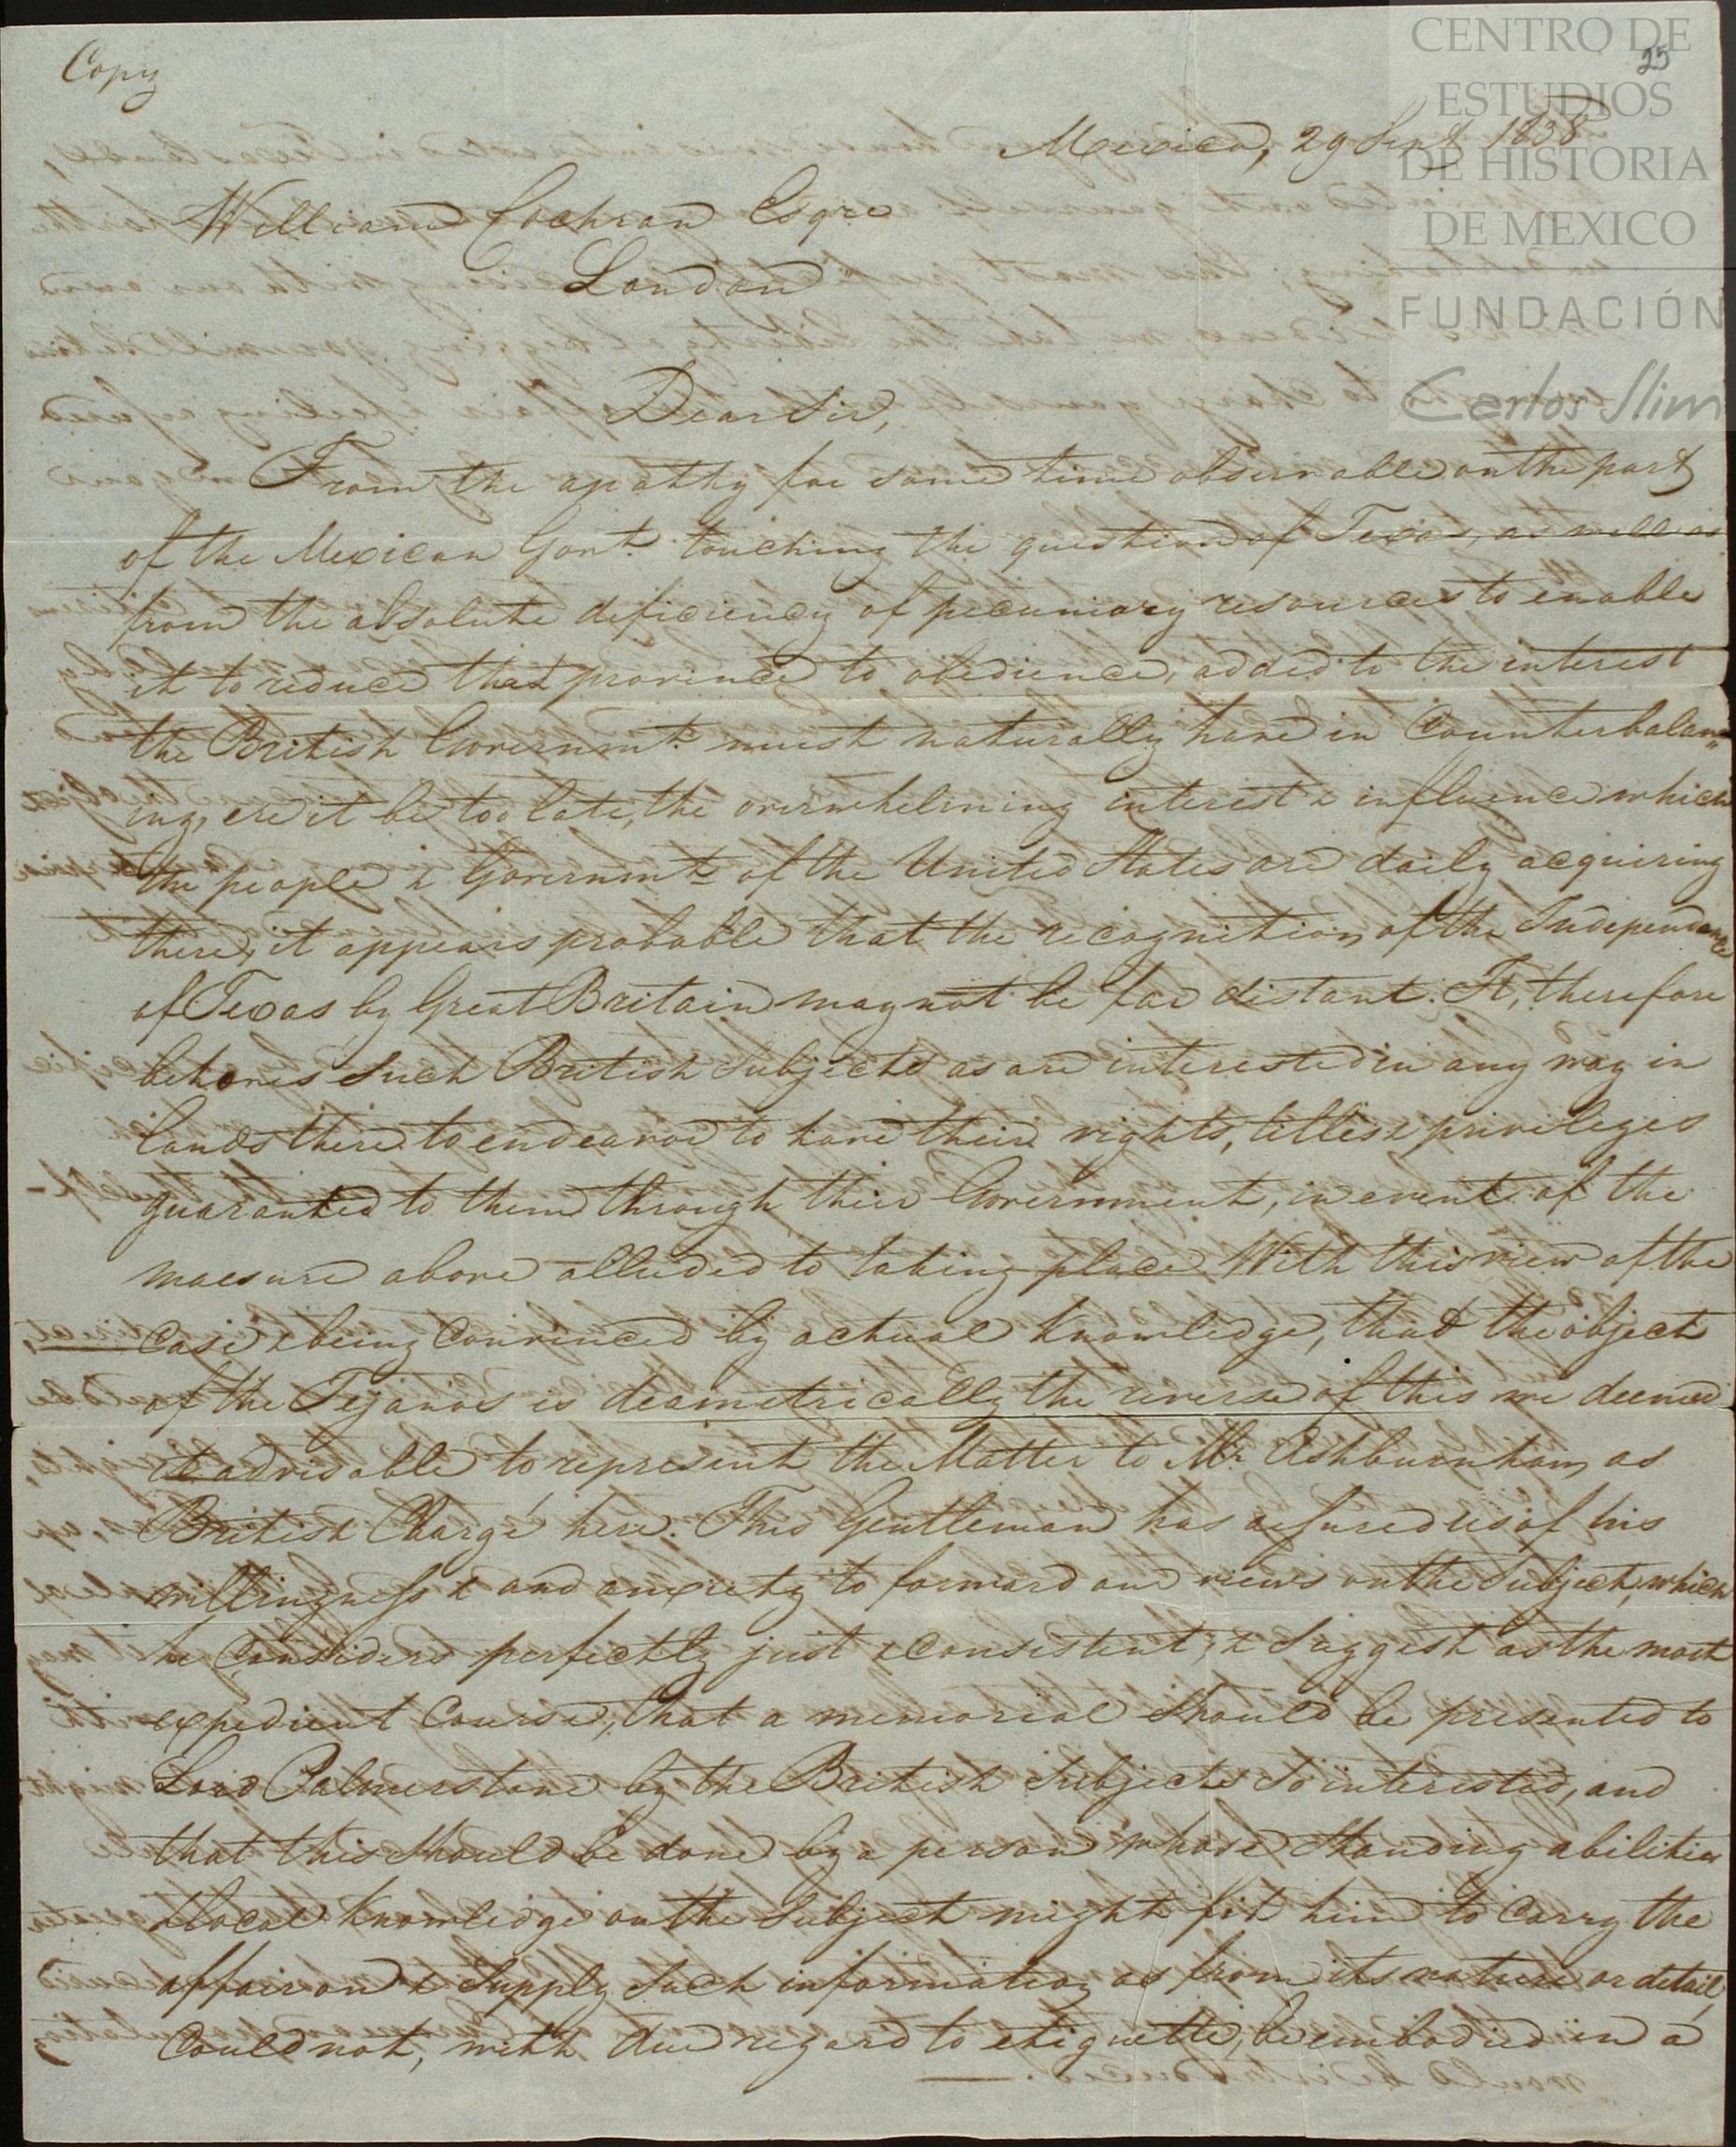 Copy
25
CENTRO DE
ESTUDIOS
DE HISTORIA
DE MEXICO
FUNDACIÓN
Carlos Slim
Mexico, 29 Sept 1838
William Cochran Esqre
London
Dear Sir,
From the apathy for some time observable on the part
of the Mexican Govt. touching the question of Texas, as well as
from the absolute deficiency of pecuniary resources to enable
it to reduce that province to obedience, added to the interest
the British Governmt. must naturally have in Counterbalan=
ing, ere it be too late, the overwhelming interest & influence which
the people & Governmt. of the United States are daily acquiring
there, it appears probable that the recognition of the Independance
of Texas by Great Britain may not be far distant. It, therefore
behoves such British Subjects as are interested in any way in
lands there to endeavor to have their rights, titles & privileges
guaranteed to them through their Government, in event of the
maesure above alluded to taking place. With this view of the
case & being convinced by actual knowledge, that the object
of the Tejanos is deametrically the reverse of this we deemed
it advisable to represent the Matter to Mr. Ashburnham, as
British Chargé here. This Gentleman has assured us of his
willingness & and anxiety to forward our views on the Subject, which
he considers perfectly just & consistent, & suggest as the most
expedient Course, that a memorial should be presented to
Lord Palmerstone by the British Subjects so interested, and
that this should be done by a person whose Standing abilities
& local knowledge on the Subject might fit him to carry the
affair on & Supply such information as from its nature or detail,
Could not, with due regard to etiquette, be embodied in a